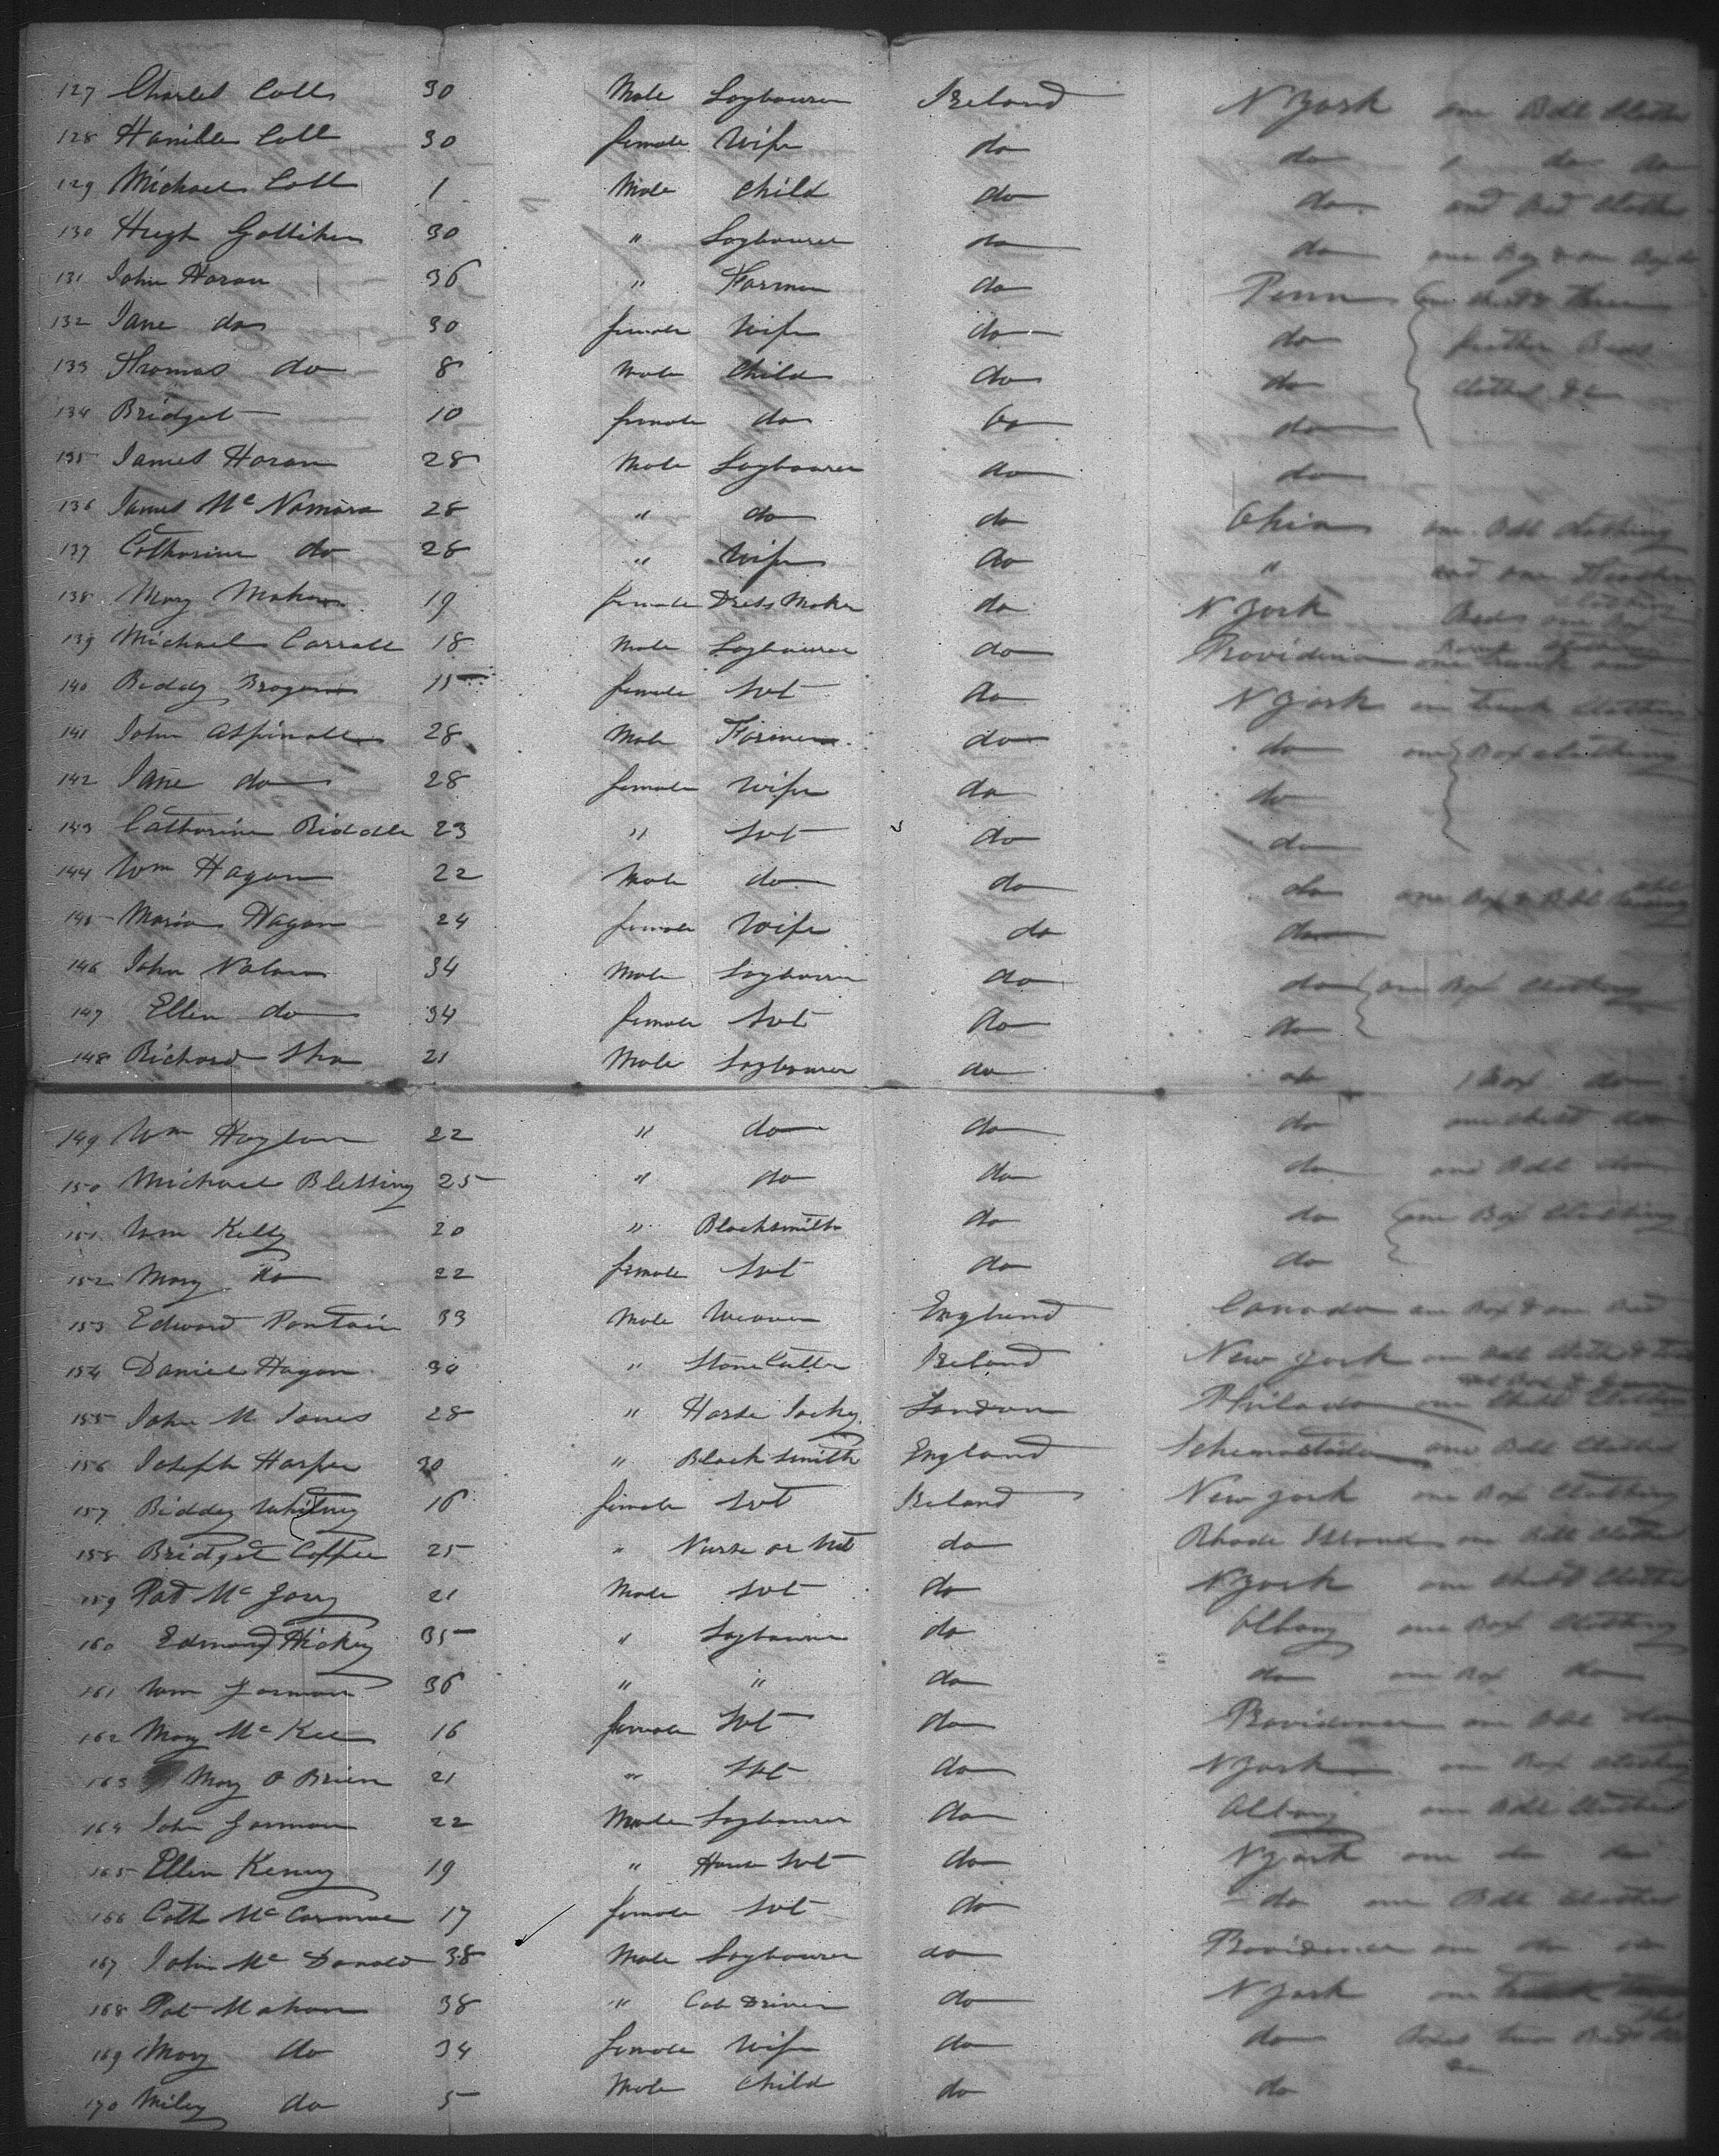 127 Charles Coll 30 Male Laybourer Ireland N York one Bdl Clothes
128 Coll 30 female Wife do do do do
129 Michael Coll 1 Male Child do do and Bed Clothes
130 Hugh 30 " Laybourer do do one Bag & one Box do
131 John Horan 36 " Farmer do Penn One chest & three
132 Jane do 30 female Wife do do feather Beds
133 Thomas do 8 Male Child do do Clothes &c
134 Bridget 10 female do do do
135 James Horan 28 Male Laybourer do do
136 James Mc Namara 28 " do do Ohio one Bdl Clothing
137 Catharine do 28 " Wife do " and one
138 Mary Mahon 19 female Dress Maker do N York
139 Michael Carroll 18 Male Laybourer do Providence one trunk
140 Biddy Brogan 15 female Svt do N York one trunk Clothes
141 John Aspinall 28 Male Farmer do do one Box clothing
142 Jane do 28 female Wife do do
143 Catharine Riddle 23 " Svt do do
144 Wm Hagan 22 Male do do do one Box & Bdl
145 Maria Hagan 24 female Wife do do
146 John Nolan 34 Male Laybourer do do one Box Clothing
147 Ellen do 34 female Svt do do
148 Richard Sha 21 Male Laybourer do do 1 Box do
149 Wm 22 " do do do one chest do
150 Michael Blessing 25 " do do do one Bdl do
151 Wm Kelly 20 " Blacksmith do do one Box Clothing
152 Mary do 22 female Svt do do
153 Edward Pontain 33 Male Weaver England Canada one Box & one
154 Daniel Hagan 30 " Stone Cutter Ireland New York one Bdl
155 John M Jones 28 " Horse Jocky London Philada one Chest Clothes
156 Joseph Harper 30 " Black Smith England one Bdl Clothes
157 Biddy Whitney 16 female Svt Ireland New York one Box Clothing
158 Bridget Coffee 25 " Nurse or Svt do Rhode Island one Bdl Clothes
159 Pat Mc 21 Male Svt do N York one Chest Clothes
160 Edmond Hickey 35 " Laybourer do Albany one Box Clothing
161 Wm Gorman 36 " " do do one Box do
162 Mary Mc Kee 16 female Svt do Providence one Bdl do
163 Mary O Brien 21 " Svt do N York one Box clothing
164 John Gorman 22 Male Laybourer do Albany one Bdl Clothes
165 Ellen Kenny 19 " House Svt do N York one do do
166 Cath Mc 17 female Svt do do one Bdl Clothes
167 John Mc Donald 38 Male Laybourer do Providence one do do
168 Pat Mahon 38 " Cab Driver do N York one
169 Mary do 34 female Wife do do
170 Miley do 5 Male Child do do